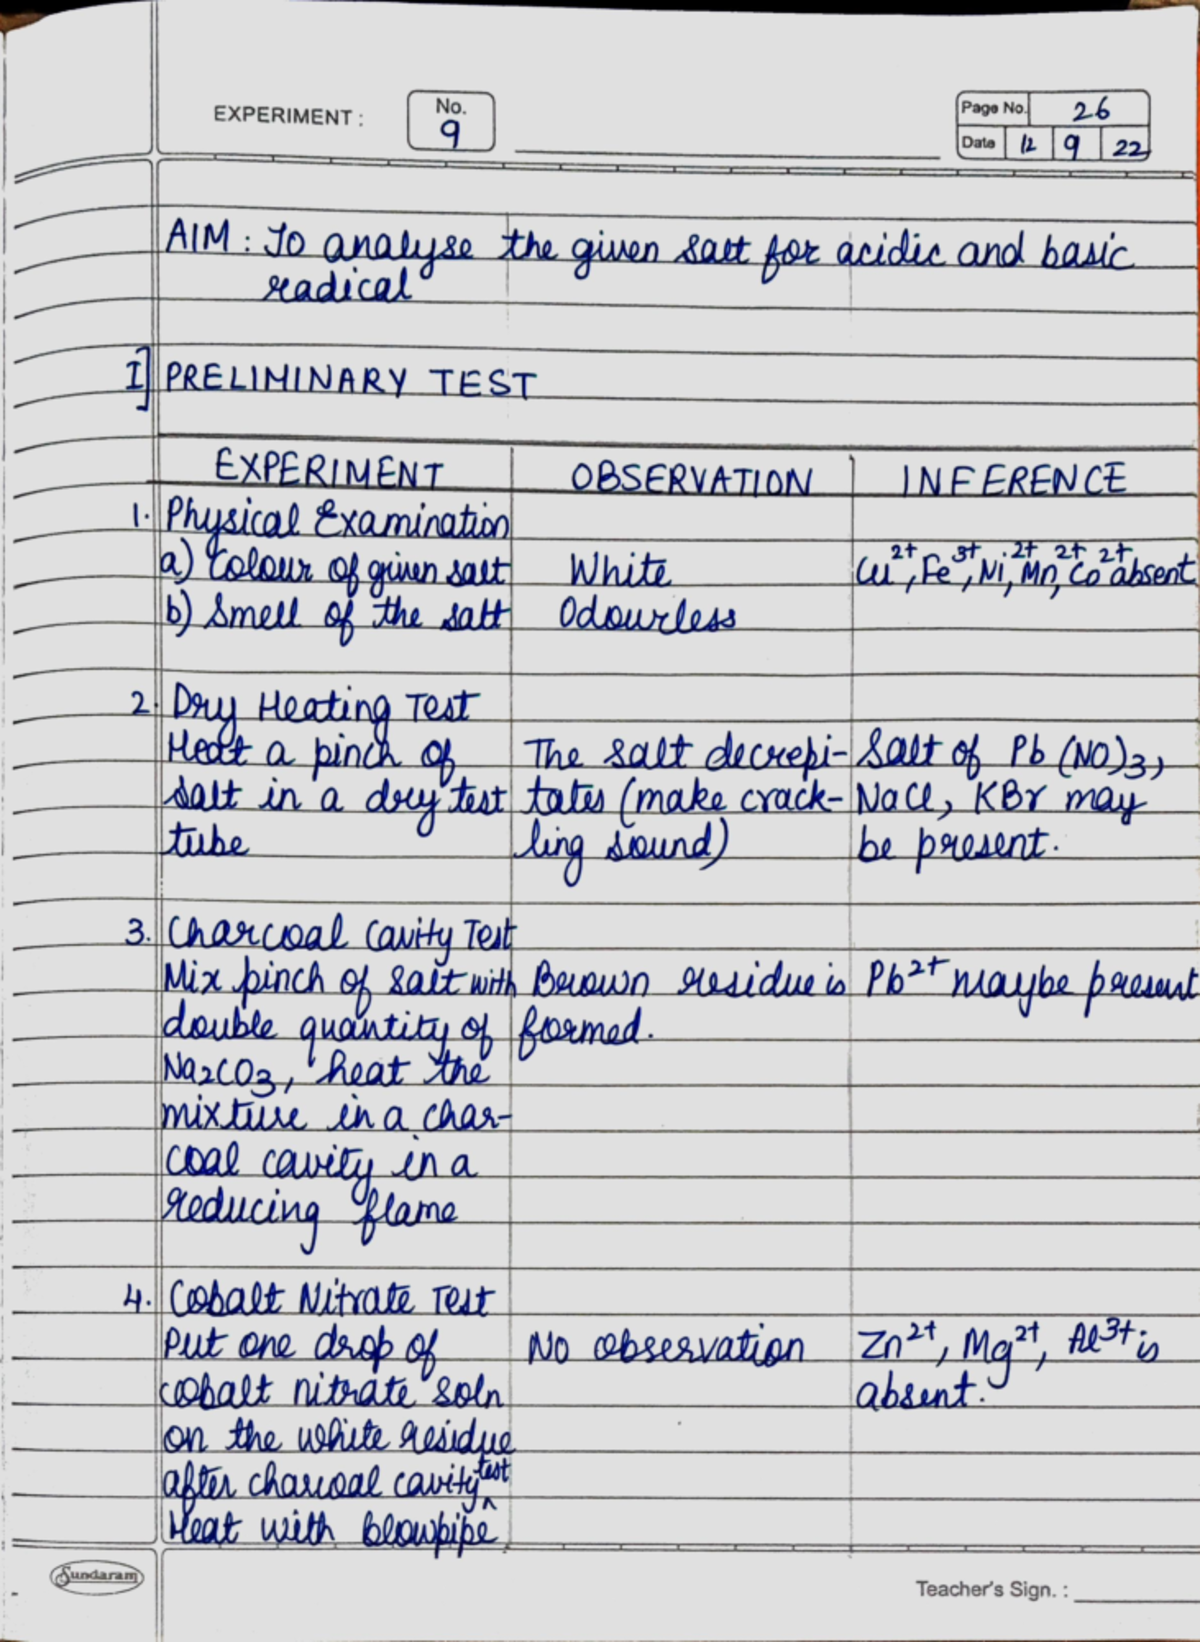 EXPERIMENT : No. 9
Page No. 26
Date 12 9 22
AIM : To analyse the given salt for acidic and basic
radical
I] PRELIMINARY TEST
EXPERIMENT OBSERVATION INFERENCE
1. Physical Examination
a) Colour of given salt White Cu²⁺, Fe³⁺, Ni²⁺, Mn²⁺, Co²⁺ absent
b) Smell of the salt Odourless
2. Dry Heating Test
Heat a pinch of The salt decrepi- Salt of Pb (NO)₃,
salt in a dry test tates (make crack- NaCl, KBr may
tube ling sound) be present.
3. Charcoal Cavity Test
Mix pinch of salt with Brown residue is Pb²⁺ maybe present
double quantity of formed.
Na₂CO₃, heat the
mixture in a char-
coal cavity in a
reducing flame
4. Cobalt Nitrate Test
Put one drop of No observation Zn²⁺, Mg²⁺, Al³⁺ is
cobalt nitrate soln absent.
on the white residue
after charcoal cavity test
Heat with blowpipe
Sundaram
Teacher's Sign. :